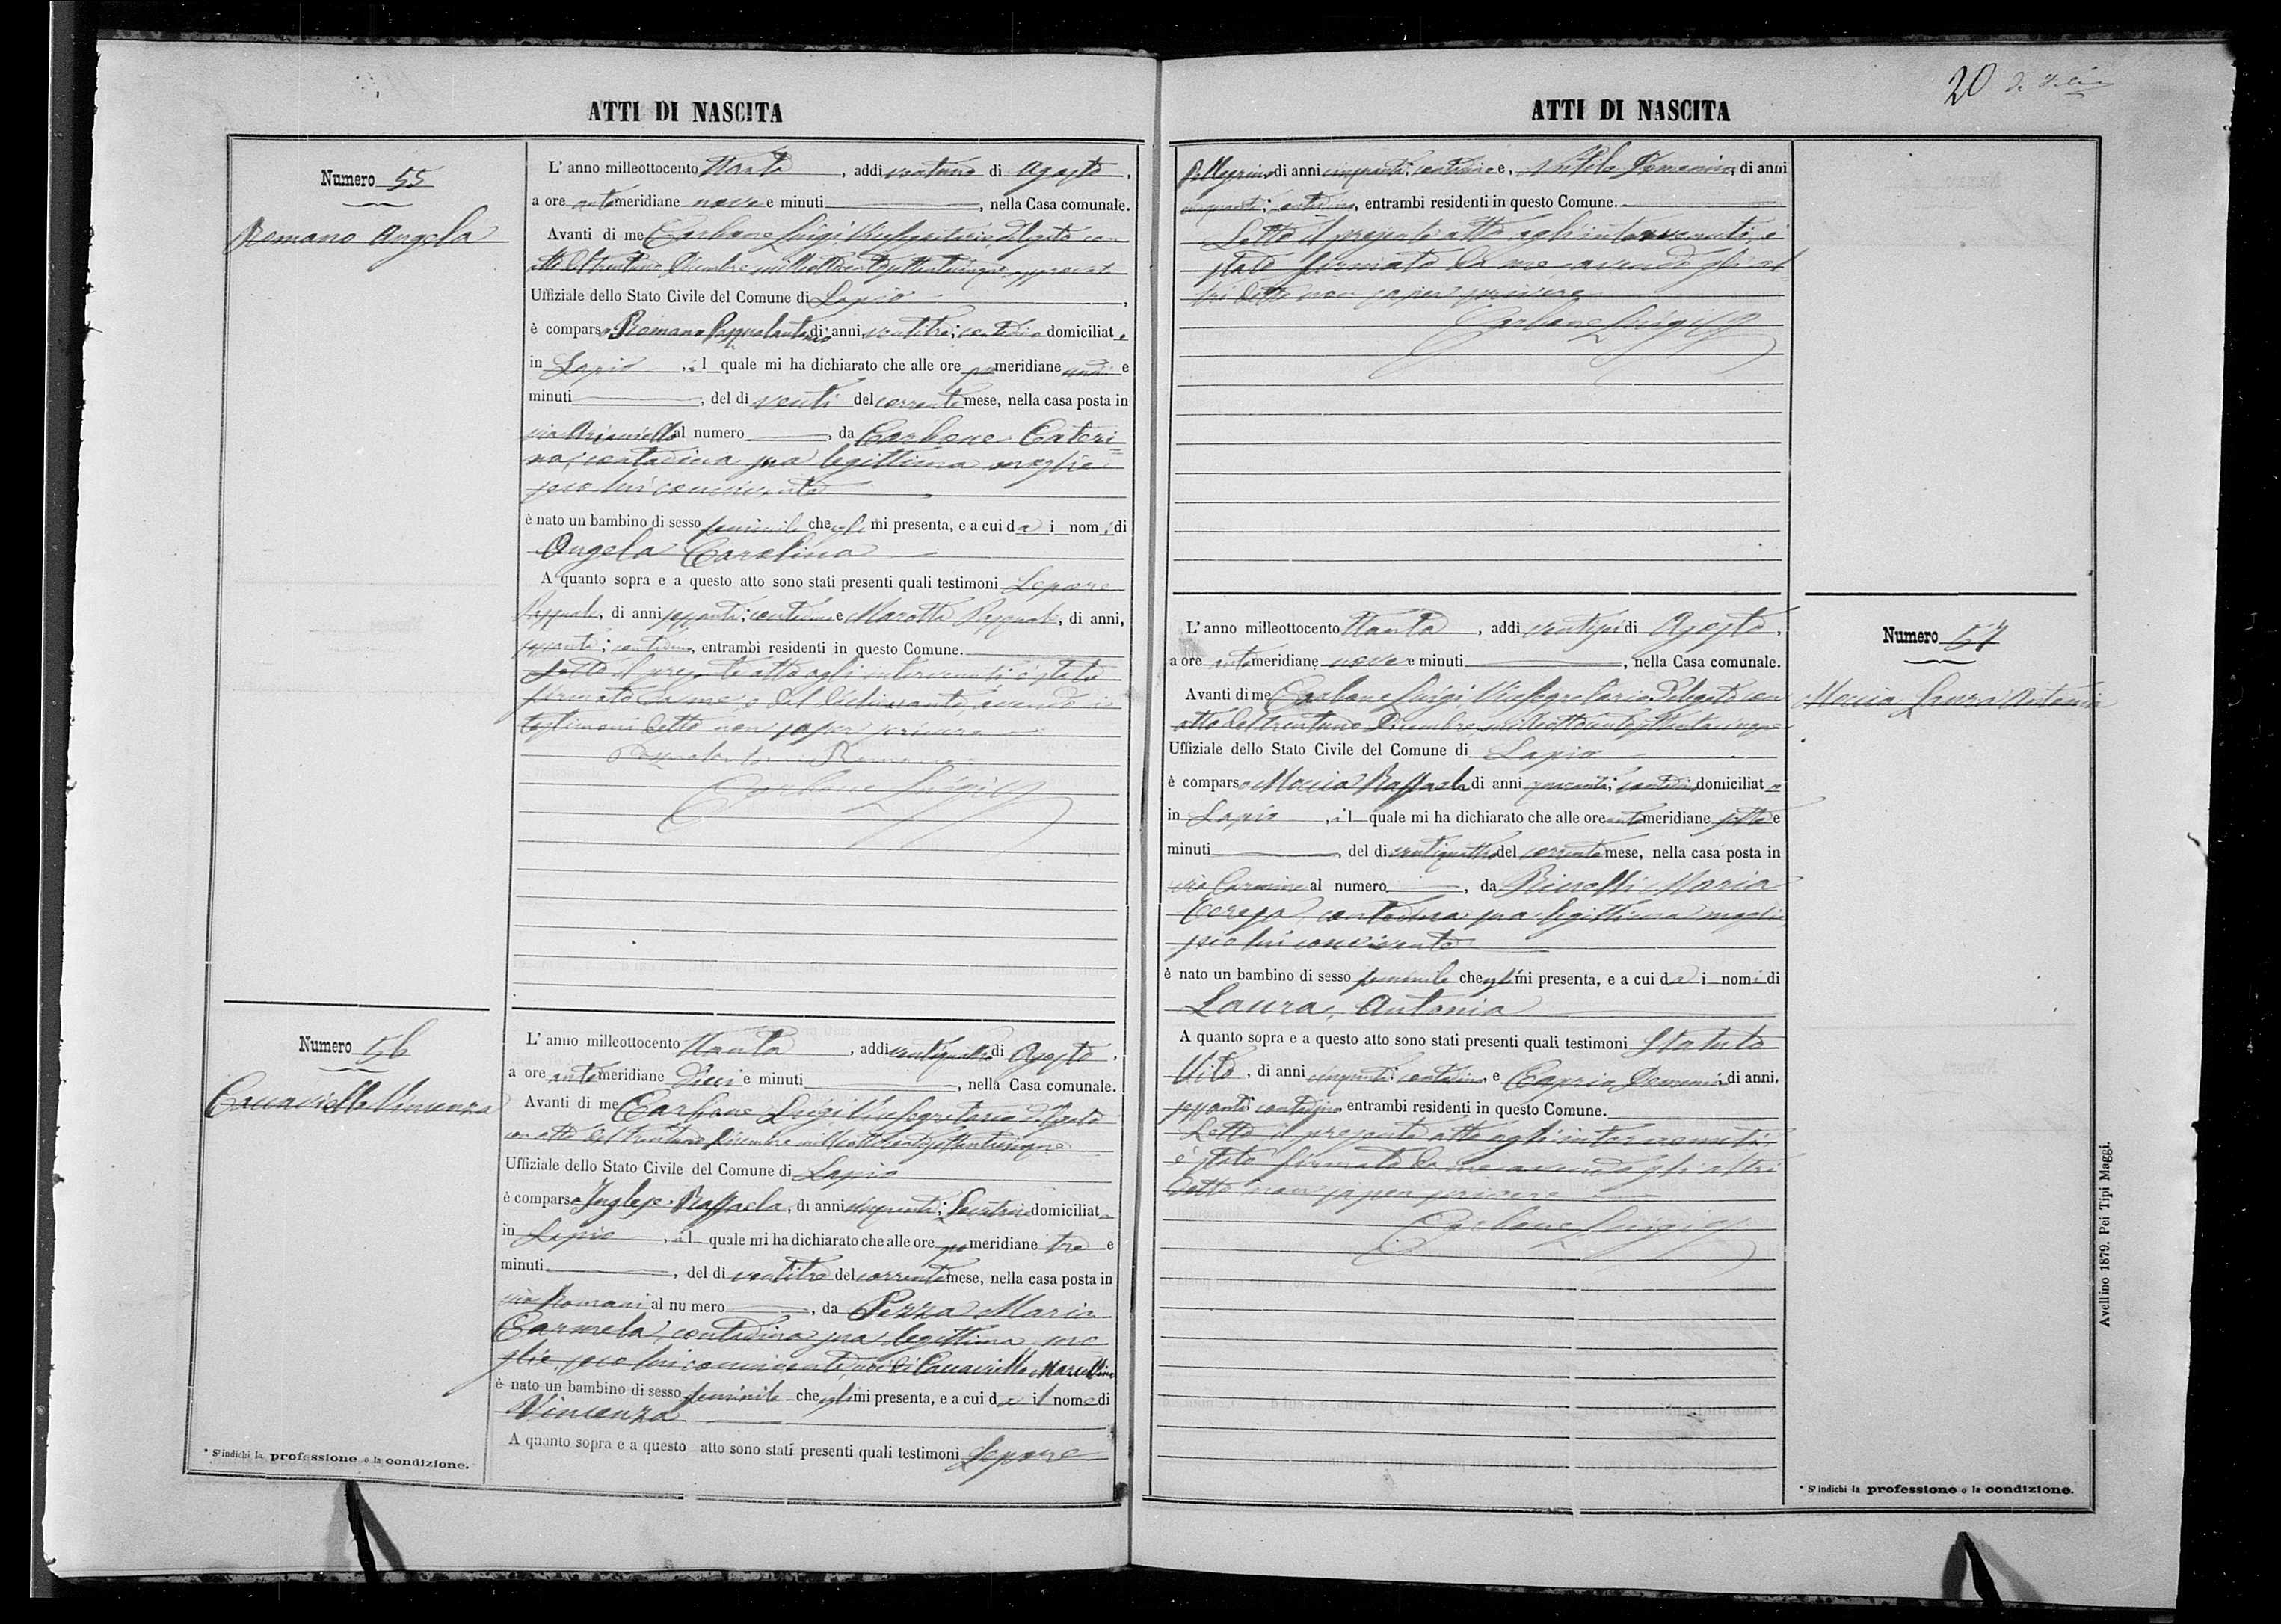 ATTI DI NASCITA
Numero 55
Romano Angela
L' anno milleottocento ottanta, addi ventuno di Agosto,
a ore antemeridiane nove e minuti, nella Casa comunale.
Avanti di me Carbone Luigi, Vicesegretario delegato con
atto del trentuno Dicembre milleottocentosettantacinque approvato
Uffiziale dello Stato Civile del Comune di Lapio,
è comparso Romano Pasqualantonio di anni ventitre; contadino domiciliato
in Lapio, il quale mi ha dichiarato che alle ore pomeridiane undici e
minuti, del di venti del corrente mese, nella casa posta in
via al numero, da Carbone Cateri=
na, contadina sua legittima moglie
seco lui convivente
è nato un bambino di sesso feminile che egli mi presenta, e a cui da i nomi di
Angela Carolina
A quanto sopra e a questo atto sono stati presenti quali testimoni Lepore
Pasquale, di anni sessanta; contadino e Marotta Pasquale, di anni,
sessanta; contadino, entrambi residenti in questo Comune.
Letto il presente atto agli intervenuti è stato
firmato da me, e dal dichiarante, avendo i
testimoni detto non saper scrivere
Pasqualantonio Romano
Carbone Luigi
Numero 56
Caccaviello Vincenza
L' anno milleottocento ottanta, addi ventiquattro di Agosto,
a ore antemeridiane Dieci e minuti, nella Casa comunale.
Avanti di me Carbone Luigi, Vicesegretario delegato
con atto del trentuno Dicembre milleottocentosettantacinque
Uffiziale dello Stato Civile del Comune di Lapio
è comparsa Inglese Raffaela, di anni cinquanta; Levatrice domiciliata
in Lapio, al quale mi ha dichiarato che alle ore pomeridiane tre e
minuti, del di ventitre del corrente mese, nella casa posta in
via Romani al numero, da Pezza Maria
Carmela, contadina sua legittima mo
glie, seco lui convivente, di Caccaviello Marcellino
è nato un bambino di sesso feminile che egli mi presenta, e a cui da il nome di
Vincenza
A quanto sopra e a questo atto sono stati presenti quali testimoni Lepore
* S'indichi la professione o la condizione.
ATTI DI NASCITA
20
Pellegrino di anni cinquanta; contadino e, Domenico, di anni
cinquanta; contadino, entrambi residenti in questo Comune.
Letto il presente atto agli intervenuti, è
stato firmato da me avendo gli al
tri detto non saper scrivere
Carbone Luigi
Numero 57
Moccia Laura Antonia
L' anno milleottocento ottanta, addi ventisei di Agosto,
a ore antemeridiane nove e minuti, nella Casa comunale.
Avanti di me Carbone Luigi, Vicesegretario Delegato con
atto del trentuno Dicembre milleottocentosettantacinque
Uffiziale dello Stato Civile del Comune di Lapio
è comparso Moccia Raffaele di anni quaranta; contadino domiciliato
in Lapio, il quale mi ha dichiarato che alle ore antemeridiane sette e
minuti, del di ventiquattro del corrente mese, nella casa posta in
via Carmine al numero, da Maria
Teresa, contadina sua legittima moglie,
seco lui convivente
è nato un bambino di sesso feminile che egli mi presenta, e a cui da i nomi di
Laura, Antonia
A quanto sopra e a questo atto sono stati presenti quali testimoni Statuto
Vito, di anni cinquanta; contadino e Caprio Domenico di anni,
sessanta contadino entrambi residenti in questo Comune.
Letto il presente atto agli intervenuti,
è stato firmato da me avendo gli altri
detto non saper scrivere
Carbone Luigi
* S'indichi la professione o la condizione.
Avellino 1879. Pei Tipi Maggi.